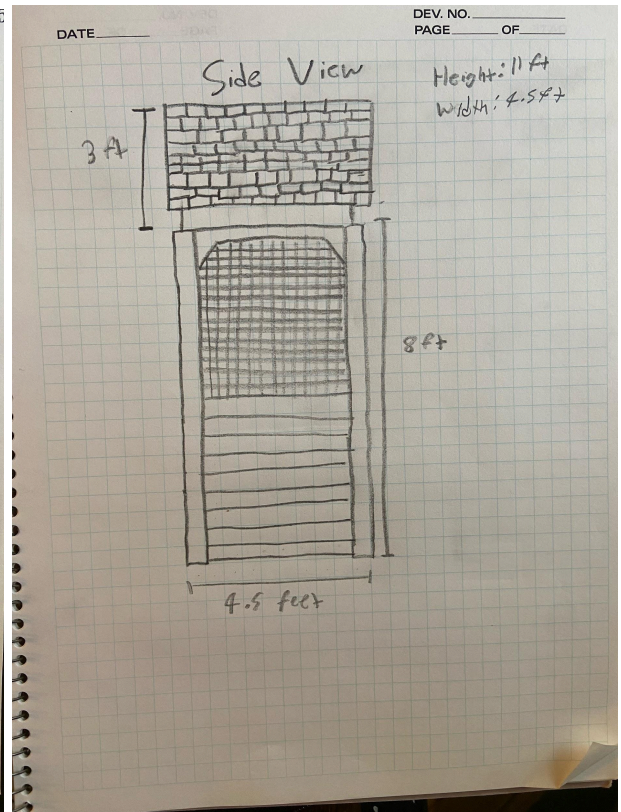 DEV. NO.
DATE
PAGE OF
Side View
Height: 11 ft
Width: 4.5ft
3 ft
8 ft
4.5 feet